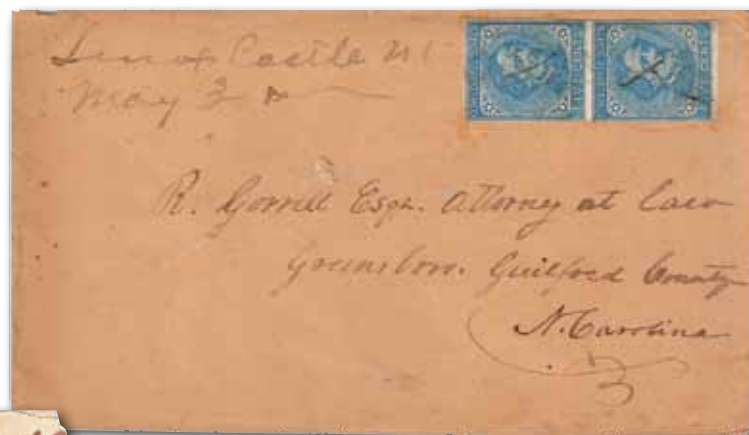 Lenox Castle NC
May 2
R. Gorrell Esqr. Attorney at Law
Greensboro. Guilford County
N. Carolina